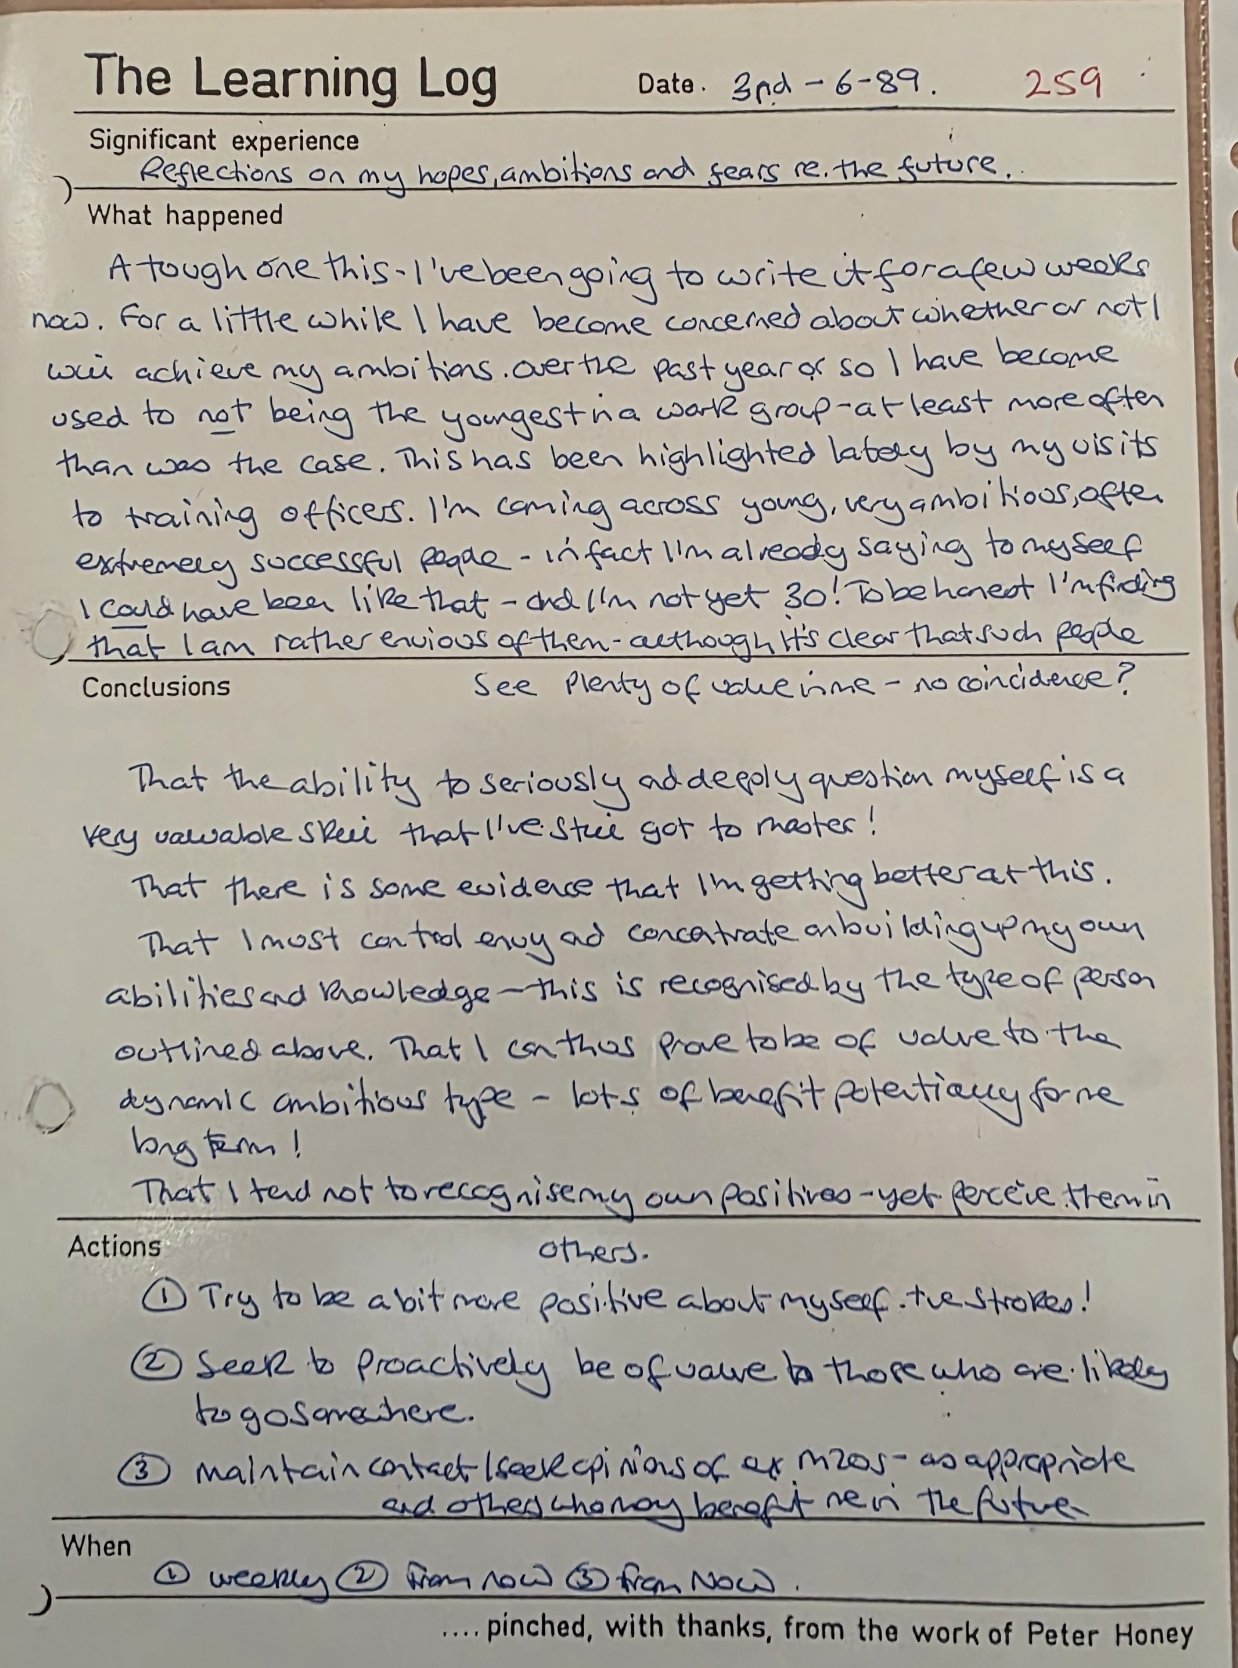 The Learning Log Date. 3rd - 6-89. 259
Significant experience
Reflections on my hopes, ambitions and fears re. the future.
What happened
A tough one this - I've been going to write it for a few weeks
now. For a little while I have become concerned about whether or not I
will achieve my ambitions. Over the past year or so I have become
used to not being the youngest in a work group - at least more often
than was the case. This has been highlighted lately by my visits
to training officers. I'm coming across young, very ambitious, often
extremely successful people - in fact I'm already saying to myself
I could have been like that - and I'm not yet 30! To be honest I'm finding
that I am rather envious of them - although it's clear that such people
see plenty of value in me - no coincidence?
Conclusions
That the ability to seriously and deeply question myself is a
very valuable skill that I've still got to master!
That there is some evidence that I'm getting better at this.
That I must control envy and concentrate on building up my own
abilities and knowledge - this is recognised by the type of person
outlined above. That I can thus prove to be of value to the
dynamic ambitious type - lots of benefit potentially for me
long term!
That I tend not to recognise my own positives - yet perceive them in
others.
Actions
① Try to be a bit more positive about myself. +ve strokes!
② Seek to proactively be of value to those who are likely
to go somewhere.
③ Maintain contact/seek opinions of ex M20s - as appropriate
and others who may benefit me in the future
When
① weekly ② from now ③ from now.
.... pinched, with thanks, from the work of Peter Honey